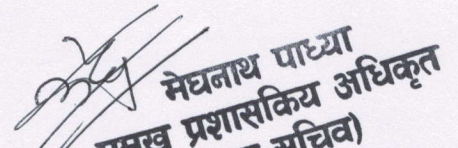 मेघनाथ पाध्या
प्रमुख प्रशासकिय अधिकृत
सचिव)